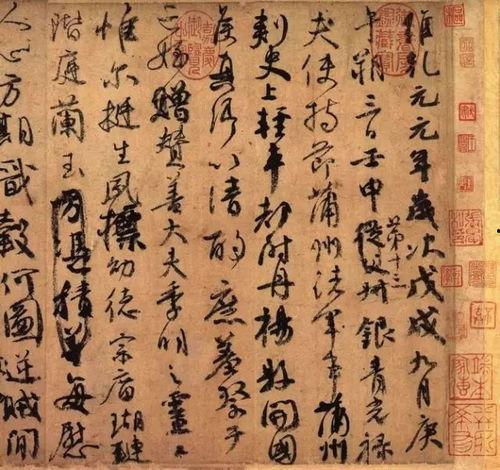 維乾元元年歲次戊戌九月庚
午朔三日壬申第十三叔銀青光祿
夫使持節蒲州諸軍事蒲州
刺史上輕車都尉丹楊縣開國
侯真卿以清酌庶羞祭于
亡姪贈贊善大夫季明之靈曰
惟爾挺生夙標幼德宗廟瑚璉
階庭蘭玉每慰
人心方期戩穀何圖逆賊間